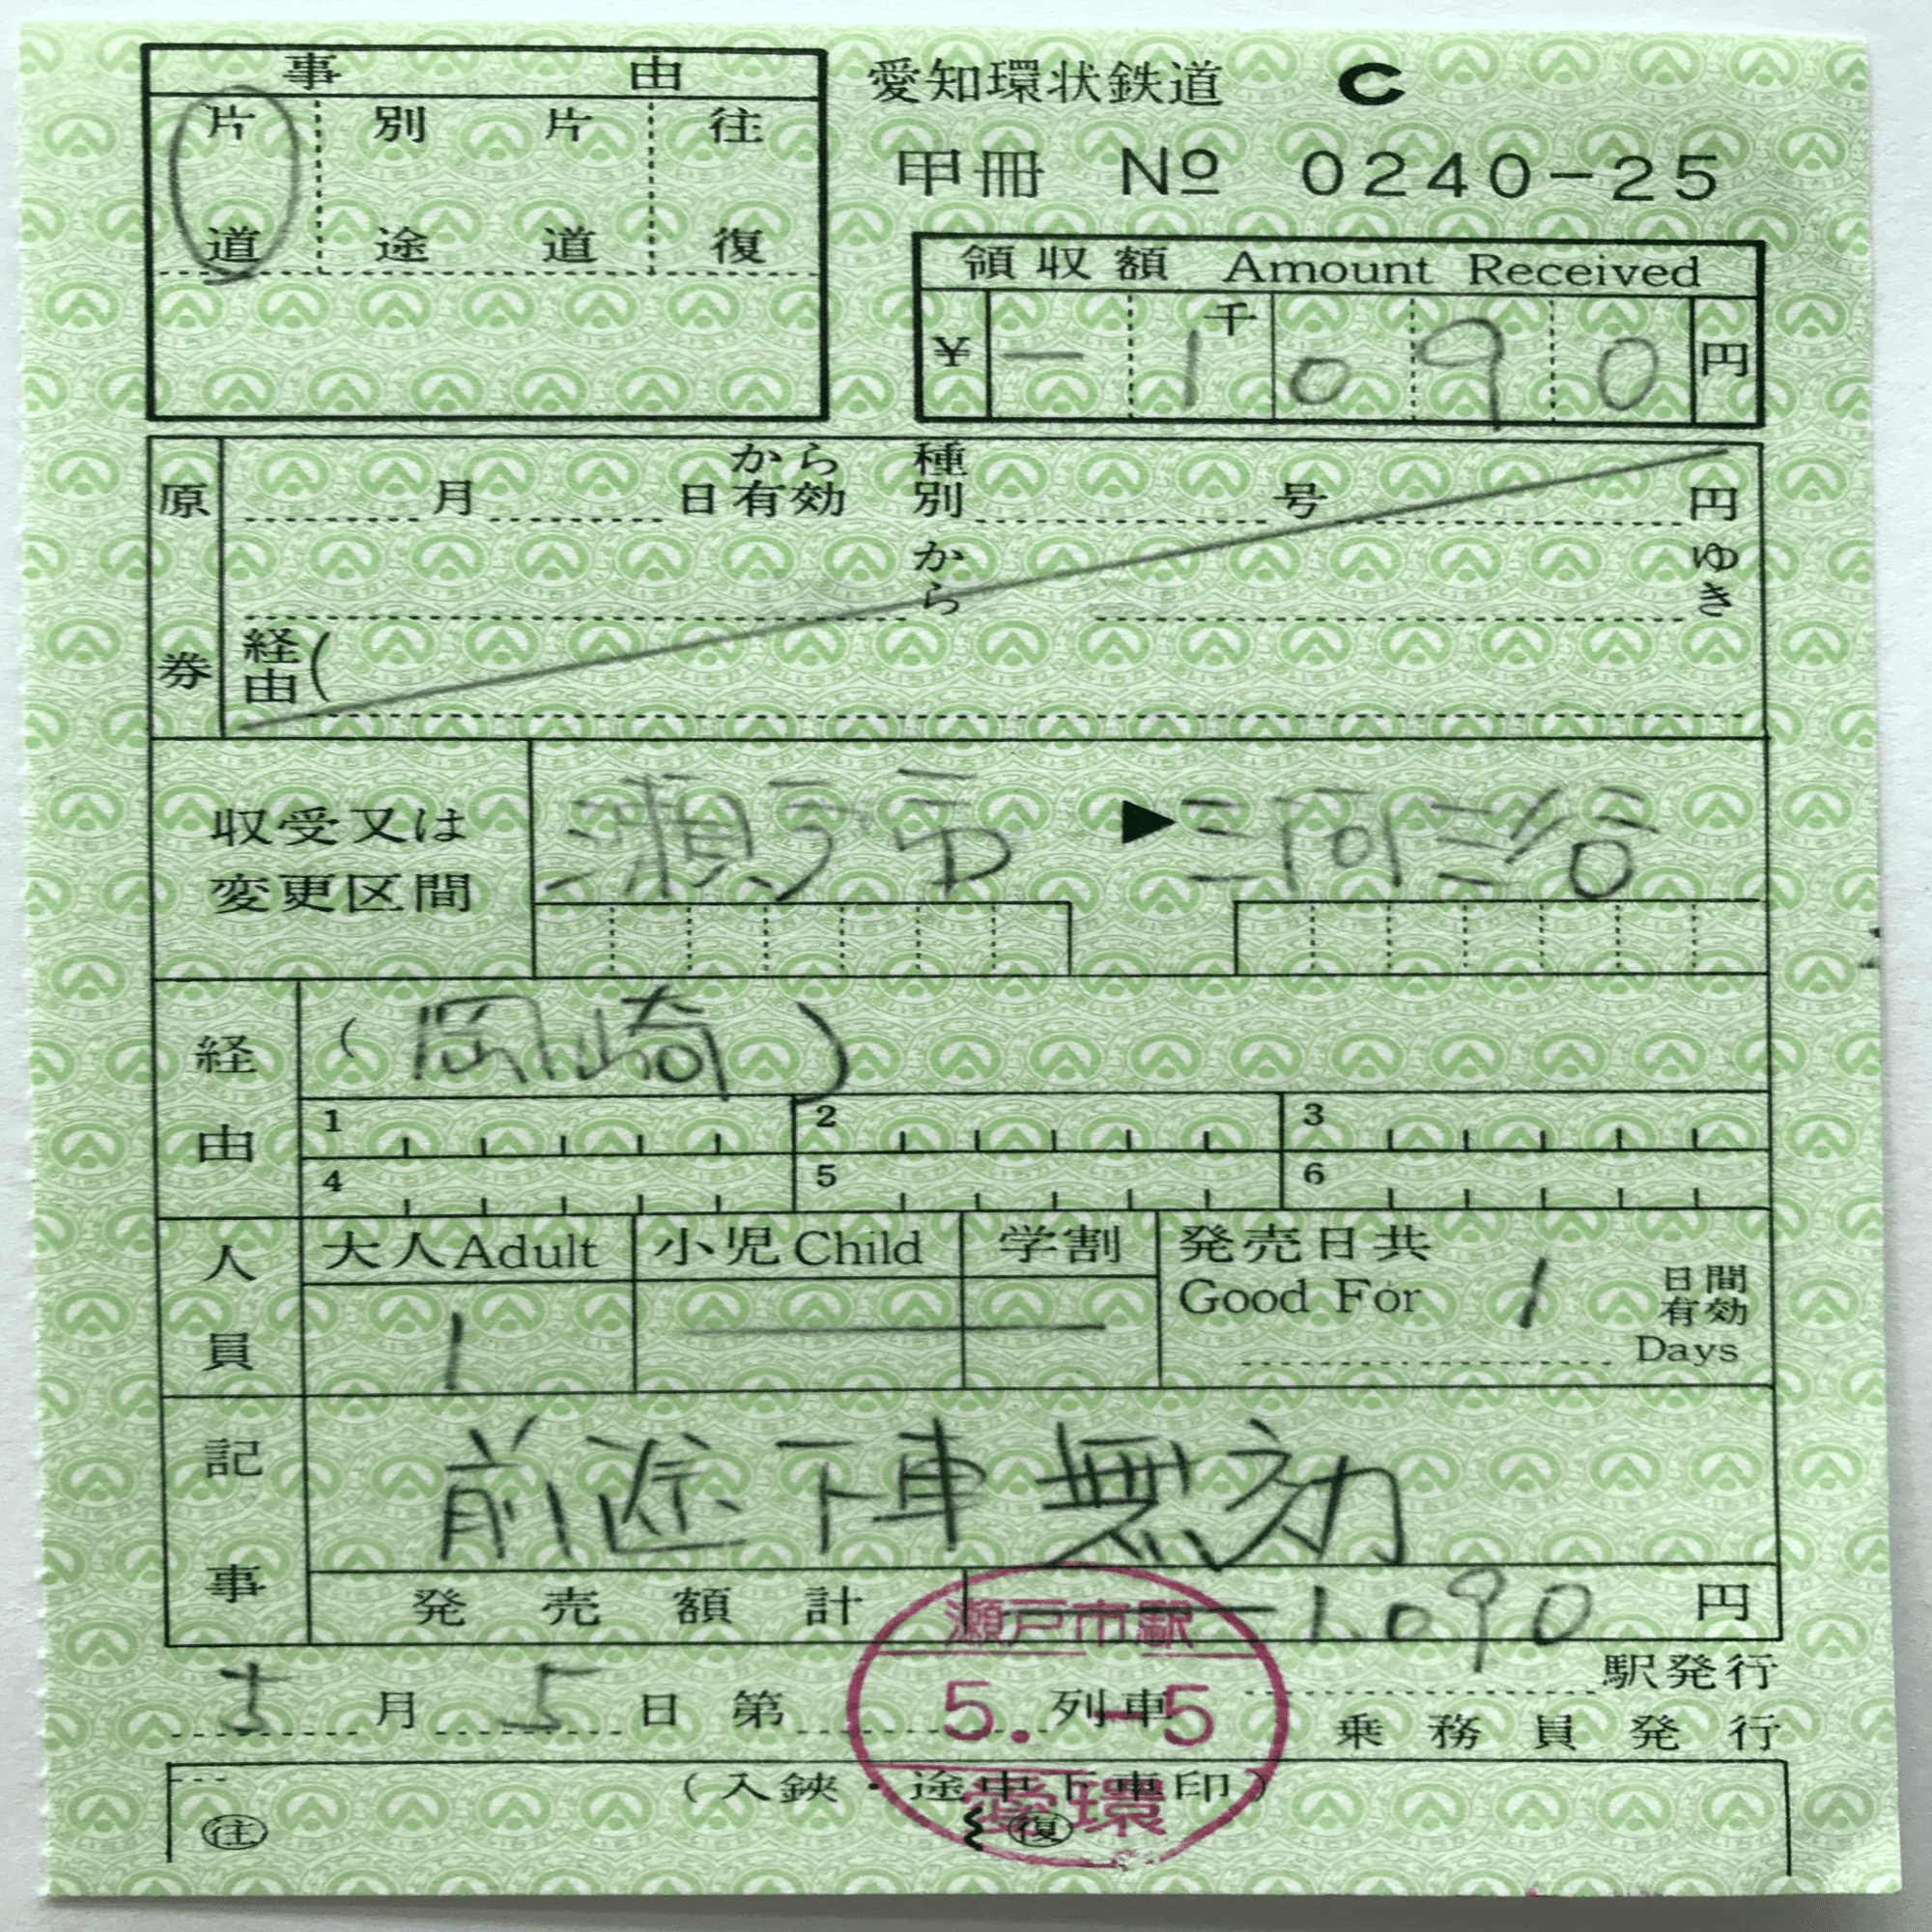 事由
愛知環状鉄道 C
片道 別途 片道 往復
甲冊 № 0240-25
領収額 Amount Received
¥ - 1千090 円
原券
月 日から有効 種別 号 円
から ゆき
経由(
収受又は変更区間
瀬戸市 ▶ 三河三谷
経由
(岡崎)
1 2 3
4 5 6
人員
大人Adult 小児Child 学割 発売日共
Good For 1 日間有効
1 Days
記事
前途下車無効
発売額計 1,090 円
瀬戸市駅
駅発行
5月5日 第 列車
5.-5
乗務員発行
(入鋏・途中下車印)
愛環
往 復